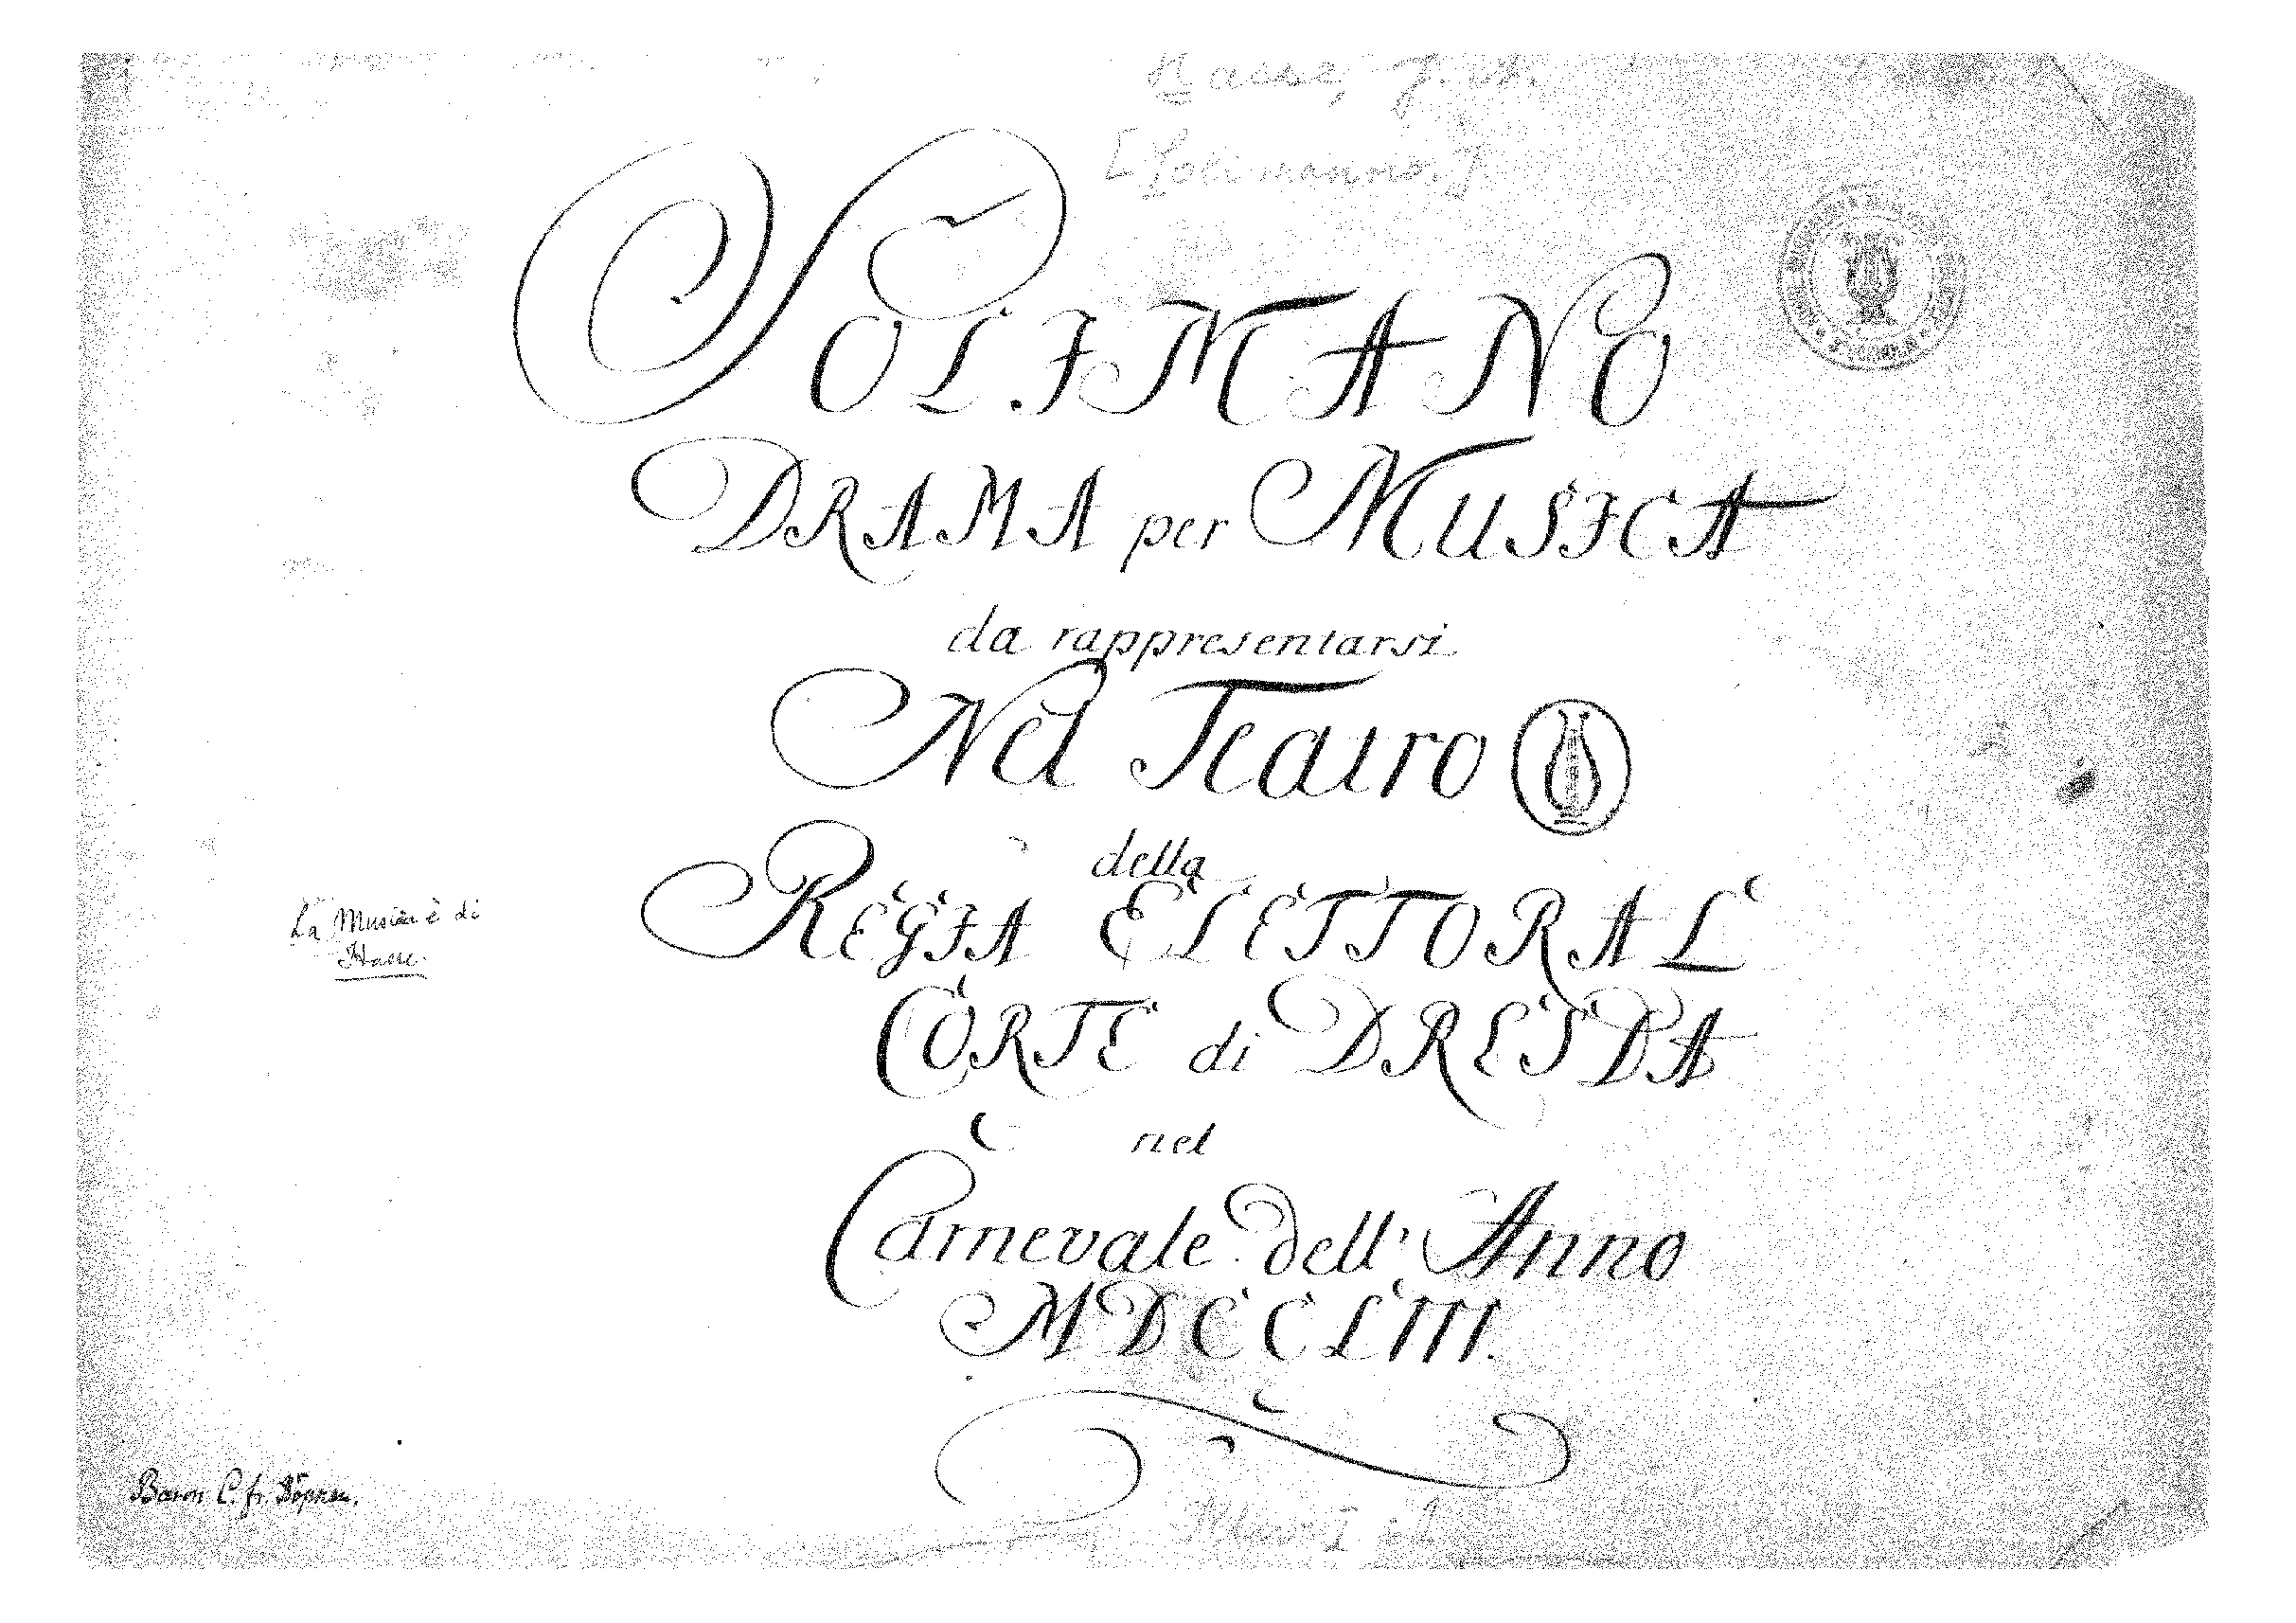 Hasse, J. A.
[Solimanno.]
SOLIMANO
DRAMA per MUSICA
da rappresentarsi
Nel Teatro
della
REGIA ELETTORAL
CORTE di DRESDA
nel
Carnevale dell' Anno
MDCCLIII.
La Musica è di
Hasse.
Baron C. fr.